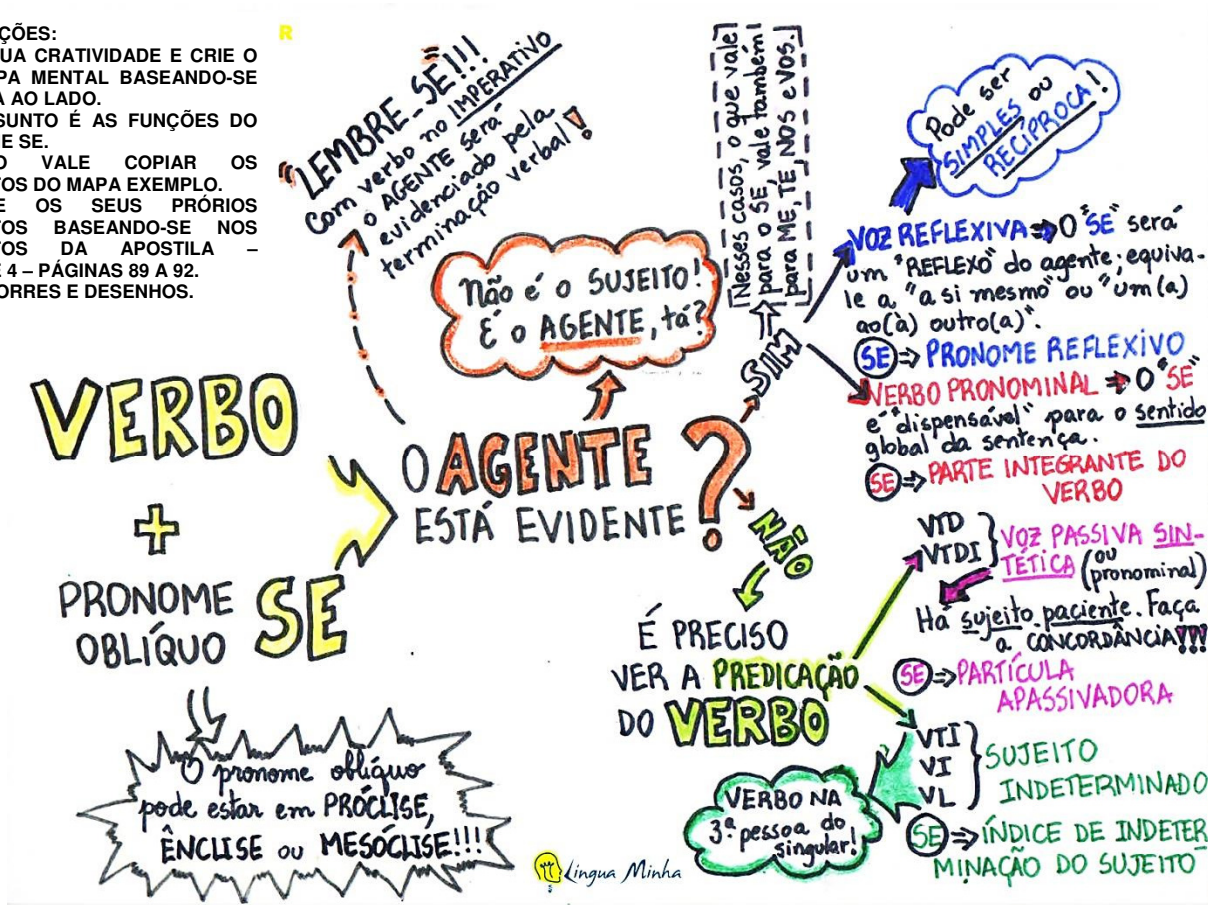 ÇÕES:
UA CRATIVIDADE E CRIE O
PA MENTAL BASEANDO-SE
A AO LADO.
SUNTO É AS FUNÇÕES DO
E SE.
O VALE COPIAR OS
TOS DO MAPA EXEMPLO.
E OS SEUS PRÓRIOS
TOS BASEANDO-SE NOS
TOS DA APOSTILA –
E 4 – PÁGINAS 89 A 92.
ORRES E DESENHOS.
R
"LEMBRE-SE!!!"
Com verbo no IMPERATIVO
o AGENTE será
evidenciado pela
terminação verbal!
Não é o SUJEITO!
É o AGENTE, tá?
Nesses casos, o que vale
para o SE, vale também
para ME, TE, NOS e VOS.
Pode ser
SIMPLES ou
RECÍPROCA!
VERBO
+
PRONOME
OBLÍQUO SE
O pronome oblíquo
pode estar em PRÓCLISE,
ÊNCLISE ou MESÓCLISE!!!
O AGENTE
ESTÁ EVIDENTE ?
SIM
VOZ REFLEXIVA ⇒ O "SE" será
um "REFLEXO" do agente; equiva-
le a "a si mesmo" ou "um(a)
ao(à) outro(a)".
SE ⇒ PRONOME REFLEXIVO
VERBO PRONOMINAL ⇒ O "SE"
é "dispensável" para o sentido
global da sentença.
SE ⇒ PARTE INTEGRANTE DO
VERBO
NÃO
É PRECISO
VER A PREDICAÇÃO
DO VERBO
VTD
VTDI
VOZ PASSIVA SIN-
TÉTICA (ou
pronominal)
Há sujeito paciente. Faça
a CONCORDÂNCIA!!!
SE ⇒ PARTÍCULA
APASSIVADORA
VTI
VI
VL
SUJEITO
INDETERMINADO
VERBO NA
3ª pessoa do
singular!
SE ⇒ ÍNDICE DE INDETER
MINAÇÃO DO SUJEITO
Língua Minha